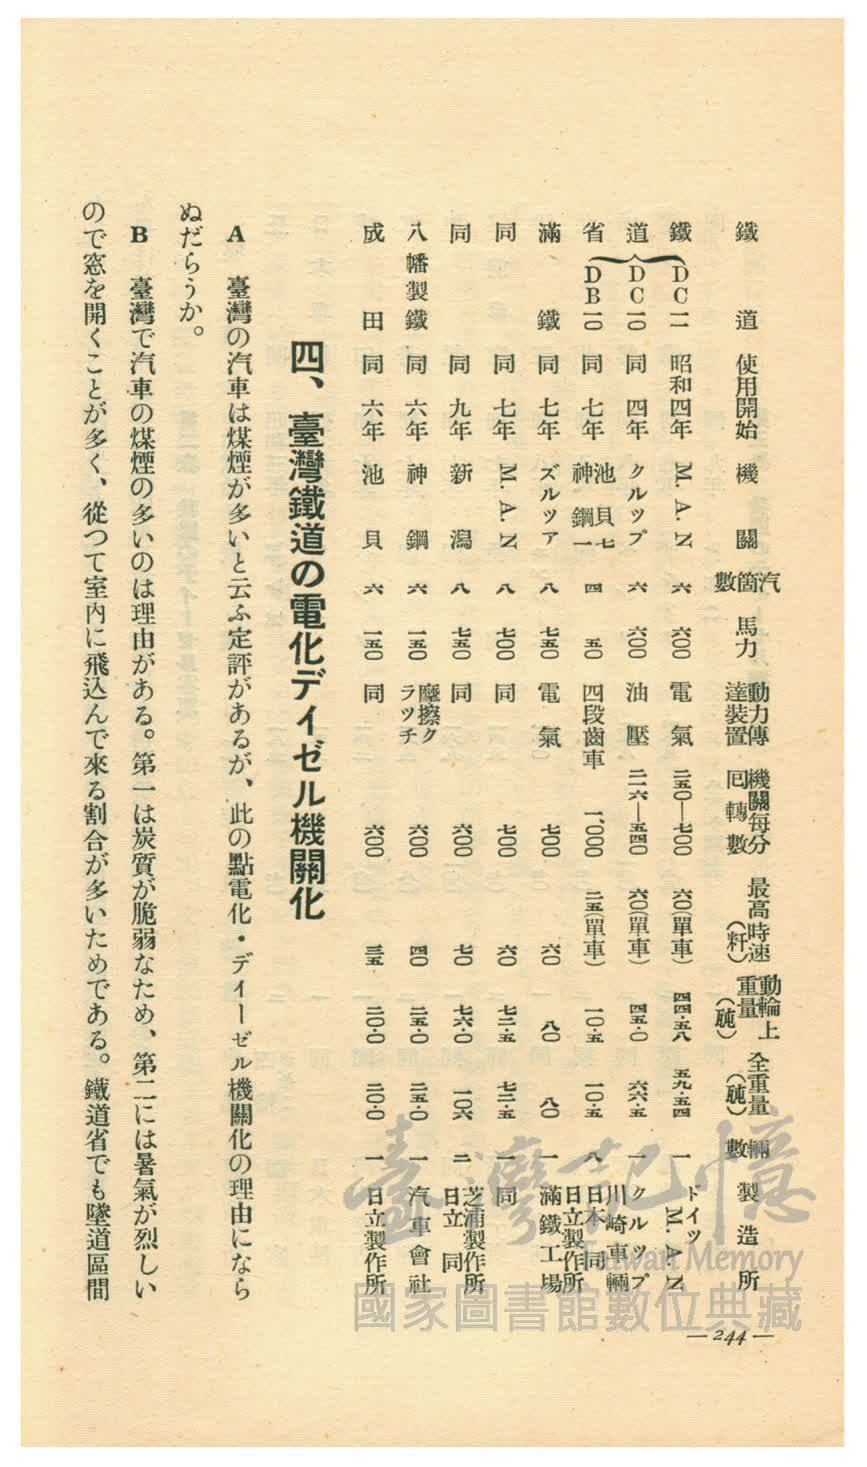 鐵道 使用開始 機關 汽筩數 馬力 動力傳達裝置 機關每分囘轉數 最高時速(粁) 動輪上重量(瓲) 全重量(瓲) 輛數 製造所
鐵道省 DC一一 昭和四年 M.A.N 六 六〇〇 電氣 二五〇—七〇〇 六〇(單車) 四四・五八 五九・五四 一 ドイツM.A.N
DC一〇 同四年 クルップ 六 六〇〇 油壓 二一六—五四〇 六〇(單車) 四五・〇 六六・五 一 クルップ
DB一〇 同七年 池貝七 神鋼一 四 五〇 四段齒車 一、〇〇〇 二五(單車) 一〇・五 一〇・五 八 川崎車輛 日本同 日立製作所
滿鐵 同七年 ズルツア 八 七五〇 電氣 七〇〇 六〇 八〇 八〇 一 滿鐵工場
同 同七年 M.A.N 八 七〇〇 同 七〇〇 六〇 七二・五 七二・五 一 同
同 同九年 新潟 八 七五〇 同 六〇〇 七〇 七六・〇 一〇六 二 芝浦製作所 日立同
八幡製鐵 同六年 神鋼 六 一五〇 摩擦クラツチ 六〇〇 四〇 二五・〇 二五・〇 一 汽車會社
成田 同六年 池貝 六 一五〇 同 六〇〇 三五 二〇・〇 二〇・〇 一 日立製作所
四、臺灣鐵道の電化デイゼル機關化
A 臺灣の汽車は煤煙が多いと云ふ定評があるが、此の點電化・ディーゼル機關化の理由になら
ぬだらうか。
B 臺灣で汽車の煤煙の多いのは理由がある。第一は炭質が脆弱なため、第二には暑氣が烈しい
ので窓を開くことが多く、從つて室内に飛込んで來る割合が多いためである。鐵道省でも墜道區間
—244—
臺灣記憶
Taiwan Memory
國家圖書館數位典藏